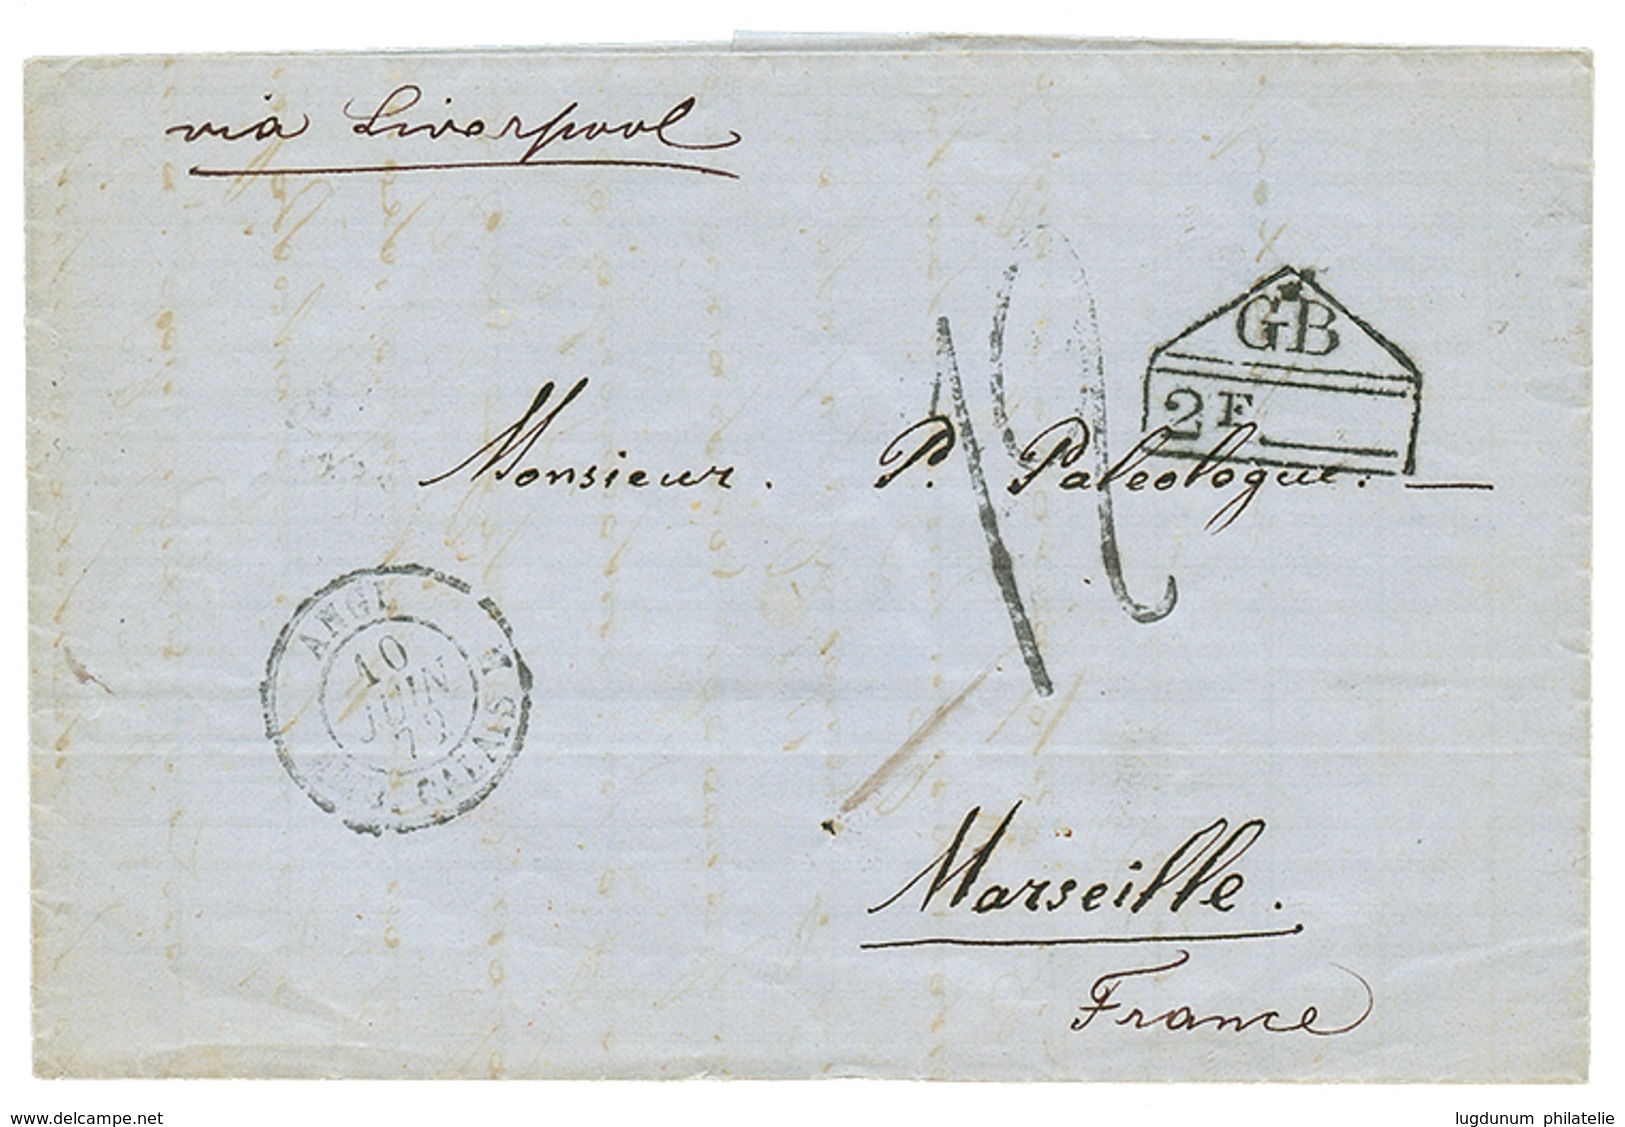 via Liverpool
GB
2F
12
Monsieur. P. Paleologue.
ANGL.
10
JUIN
72
AMB. CALAIS
Marseille.
France
www.delcampe.net
lugdunum philatelie